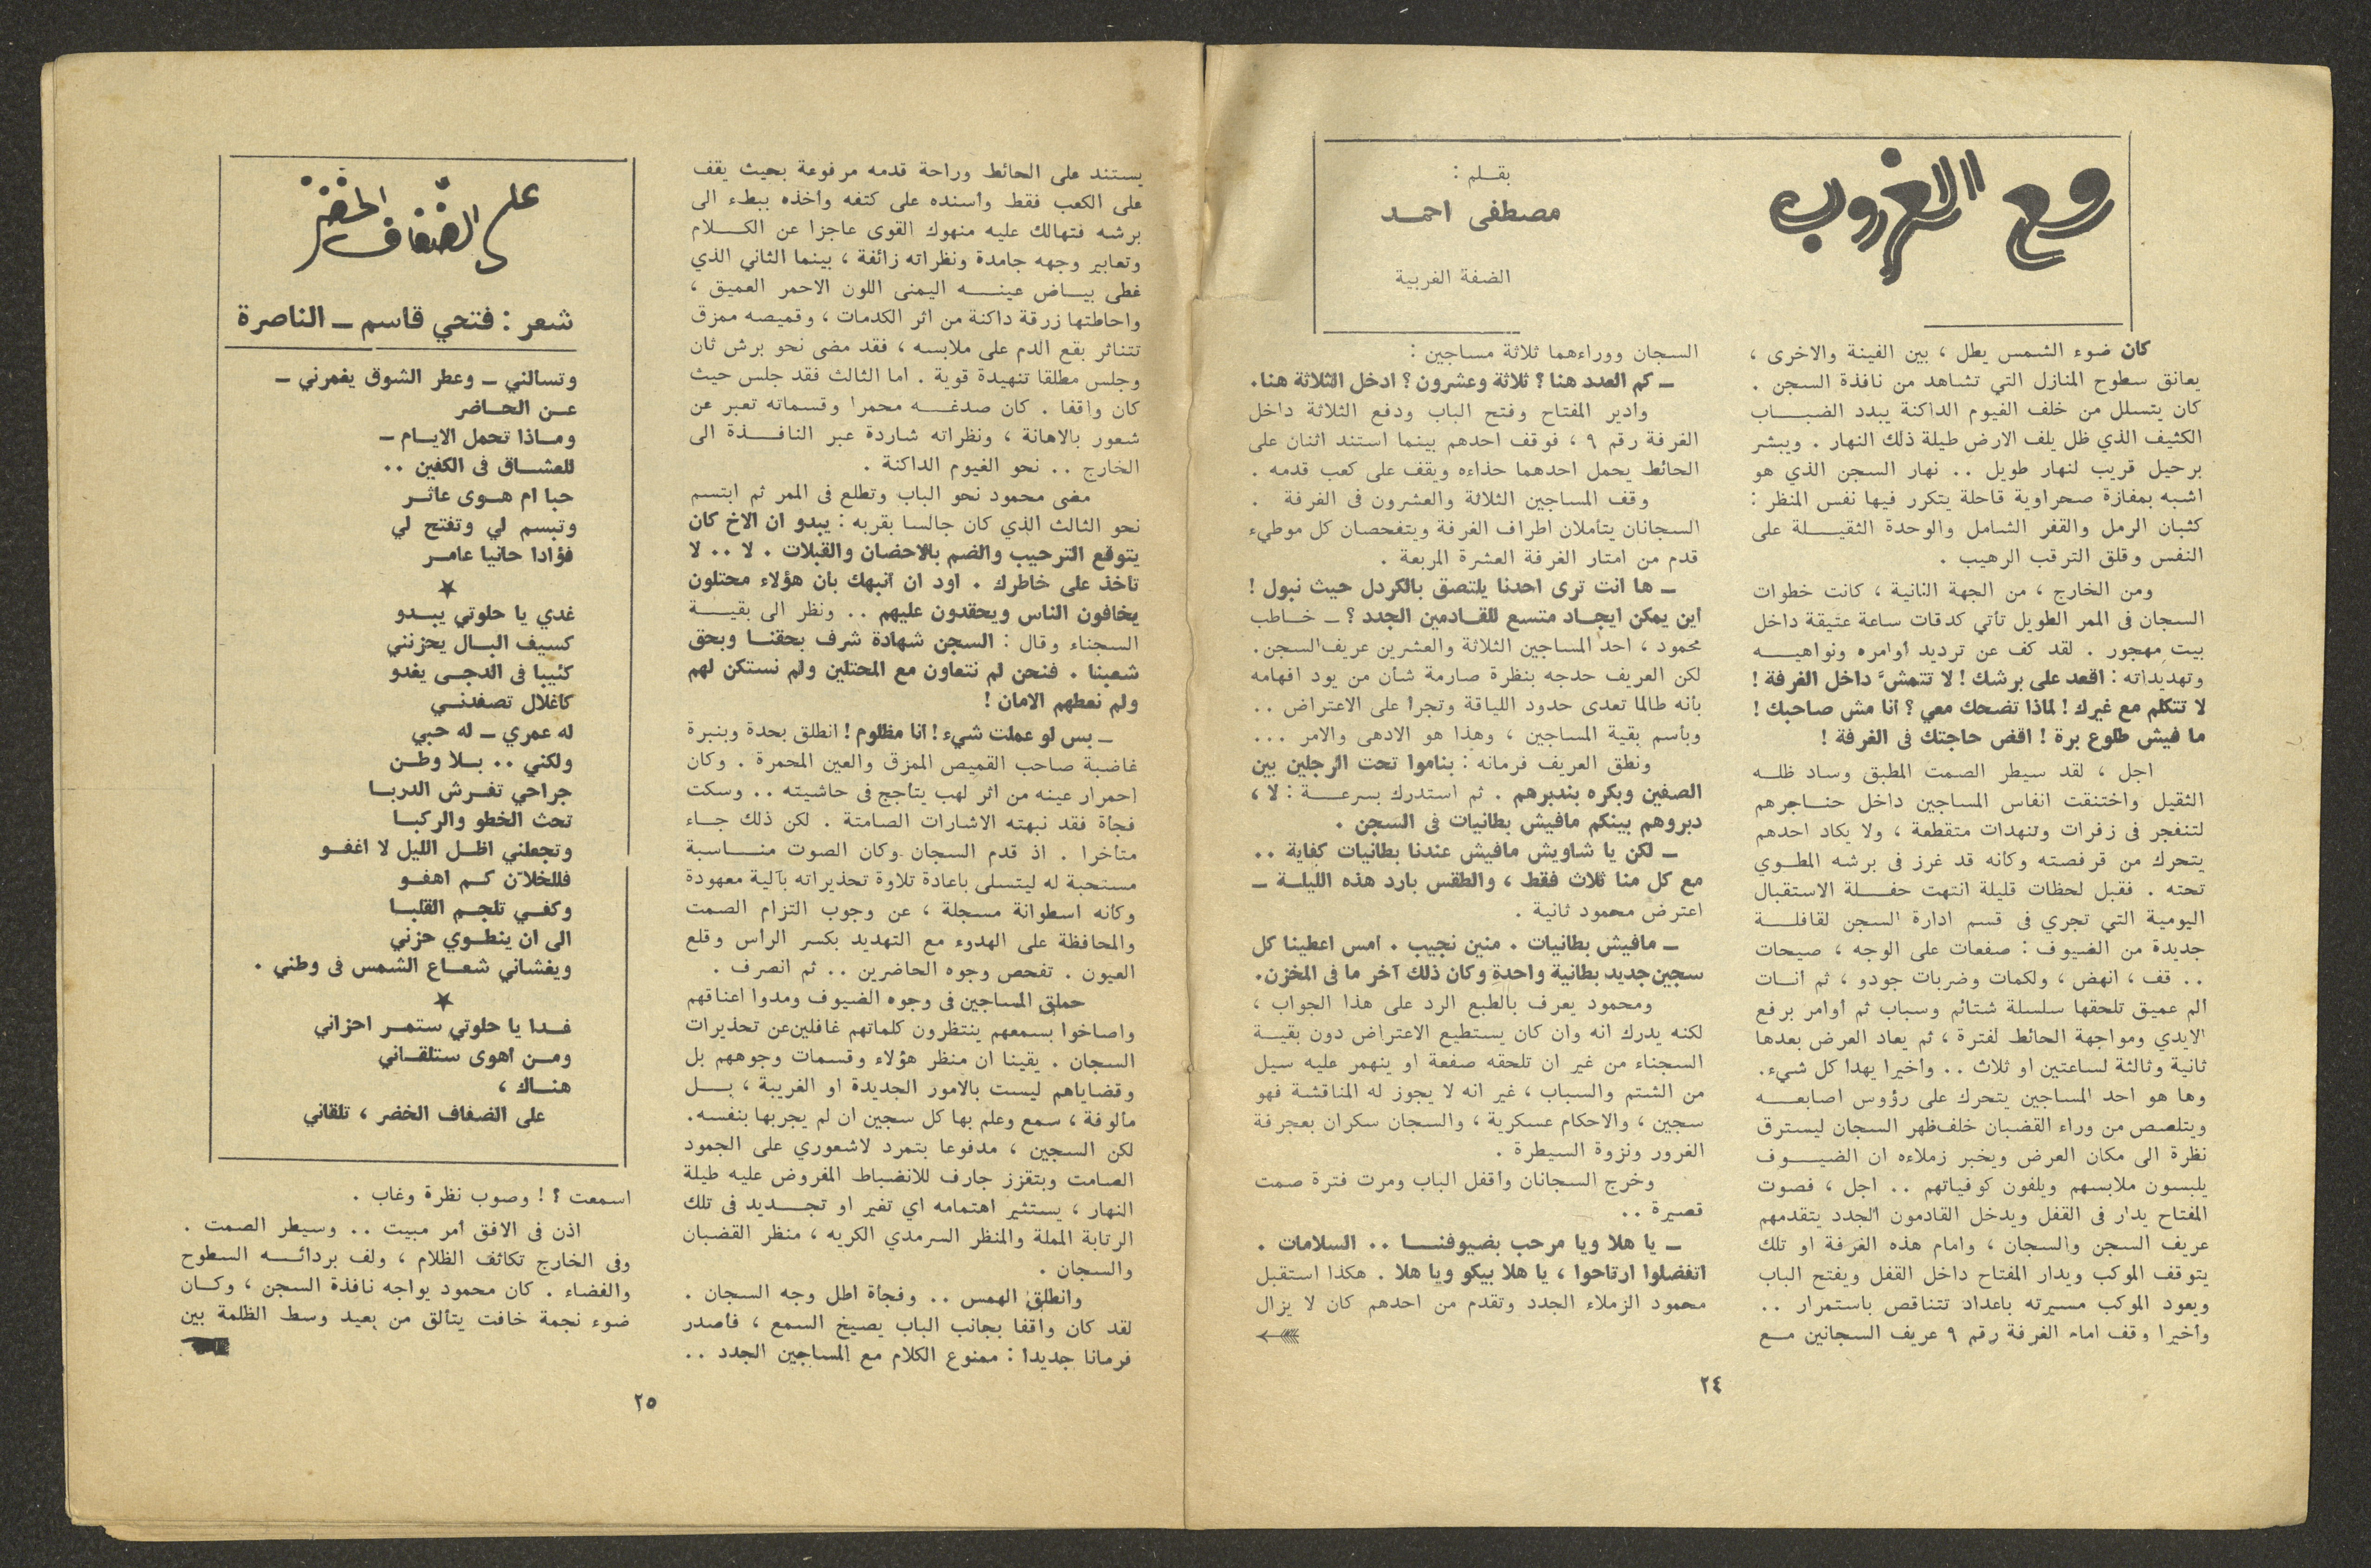 مع الغروب
بقـلم :
مصطفى احمـد
الضفة الغربية
كان ضوء الشمس يطل ، بين الفينة والاخرى ،
يعانق سطوح المنازل التي تشاهد من نافذة السجن .
كان يتسلل من خلف الغيوم الداكنة يبدد الضبـاب
الكثيف الذي ظل يلف الارض طيلة ذلك النهار . ويبشر
برحيل قريب لنهار طويل .. نهار السجن الذي هو
اشبه بمفازة صحراوية قاحلة يتكرر فيها نفس المنظر :
كثبان الرمل والقفر الشامل والوحدة الثقيـلة على
النفس وقلق الترقب الرهيب .
ومن الخارج ، من الجهة الثانية ، كانت خطوات
السجان فى الممر الطويل تأتي كدقات ساعة عتيقة داخل
بيت مهجور . لقد كف عن ترديد أوامره ونواهيـه
وتهديداته : اقعد على برشك ! لا تتمشَّ داخل الغرفة !
لا تتكلم مع غيرك ! لماذا تضحك معي ؟ أنا مش صاحبك !
ما فيش طلوع برة ! اقض حاجتك فى الغرفة !
اجل ، لقد سيطر الصمت المطبق وساد ظلـه
الثقيل واختنقت انفاس المساجين داخل حنـاجرهم
لتنفجر فى زفرات وتنهدات متقطعة ، ولا يكاد احدهم
يتحرك من قرفصته وكأنه قد غرز فى برشه المطـوي
تحته . فقبل لحظات قليلة انتهت حفـلة الاستقبال
اليومية التي تجري فى قسم ادارة السجن لقافلـة
جديدة من الضيوف : صفعات على الوجه ، صيحات
.. قف ، انهض ، ولكمات وضربات جودو ، ثم انـات
الم عميق تلحقها سلسلة شتائم وسباب ثم أوامر برفع
الايدي ومواجهة الحائط لفترة ، ثم يعاد العرض بعدها
ثانية وثالثة لساعتين او ثلاث .. وأخيرا يهدا كل شيء.
وها هو احد المساجين يتحرك على رؤوس اصابعـه
ويتلصص من وراء القضبان خلف ظهر السجان ليسترق
نظرة الى مكان العرض ويخبر زملاءه ان الضيـوف
يلبسون ملابسهم ويلفون كوفياتهم .. اجل ، فصوت
المفتاح يدار فى القفل ويدخل القادمون الجدد يتقدمهم
عريف السجن والسجان ، وامام هذه الغرفة او تلك
يتوقف الموكب ويدار المفتاح داخل القفل ويفتح الباب
ويعود الموكب مسيرته باعداد تتناقص باستمرار ..
وأخيرا وقف امام الغرفة رقم ٩ عريف السجانين مـع
السجان ووراءهما ثلاثة مساجين :
ـ كم العدد هنا ؟ ثلاثة وعشرون ؟ ادخل الثلاثة هنا.
وأدير المفتاح وفتح الباب ودفع الثلاثة داخل
الغرفة رقم ٩ ، فوقف احدهم بينما استند اثنان على
الحائط يحمل احدهما حذاءه ويقف على كعب قدمه .
وقف المساجين الثلاثة والعشرون فى الغرفة .
السجانان يتأملان اطراف الغرفة ويتفحصان كل موطيء
قدم من امتار الغرفة العشرة المربعة .
ـ ها انت ترى احدنا يلتصق بالكردل حيث نبول !
اين يمكن ايجـاد متسع للقـادمين الجدد ؟ ـ خـاطب
محمود ، احد المساجين الثلاثة والعشرين عريف السجن.
لكن العريف حدجه بنظرة صارمة شأن من يود افهامه
بأنه طالما تعدى حدود اللياقة وتجرأ على الاعتراض ..
وبأسم بقية المساجين ، وهذا هو الادهى والامر ...
ونطق العريف فرمانه : بناموا تحت الرجلين بين
الصفين وبكره بندبرهم . ثم استدرك بسرعـة : لا ،
دبروهم بينكم مافيش بطانيات فى السجن .
ـ لكن يا شاويش مافيش عندنا بطانيات كفاية ..
مع كل منا ثلاث فقط ، والطقس بارد هذه الليلـة ـ
اعترض محمود ثانية .
ـ مافيش بطانيات . منين نجيب . امس اعطينا كل
سجين جديد بطانية واحدة وكان ذلك آخر ما فى المخزن.
ومحمود يعرف بالطبع الرد على هذا الجواب ،
لكنه يدرك انه وان كان يستطيع الاعتراض دون بقيـة
السجناء من غير ان تلحقه صفعة او ينهمر عليه سيل
من الشتم والسباب ، غير انه لا يجوز له المناقشة فهو
سجين ، والاحكام عسكرية ، والسجان سكران بعجرفة
الغرور ونزوة السيطرة .
وخرج السجانان وأقفل الباب ومرت فترة صمت
قصيرة ..
ـ يا هلا ويا مرحب بضيوفنـا .. السلامات .
اتفضلوا ارتاحوا ، يا هلا بيكو ويا هلا . هكذا استقبل
محمود الزملاء الجدد وتقدم من احدهم كان لا يزال
٢٤
يستند على الحائط وراحة قدمه مرفوعة بحيث يقف
على الكعب فقط وأسنده على كتفه وأخذه ببطء الى
برشه فتهالك عليه منهوك القوى عاجزا عن الكـلام
وتعابير وجهه جامدة ونظراته زائغة ، بينما الثاني الذي
غطى بيـاض عينـه اليمنى اللون الاحمر العميق ،
واحاطتها زرقة داكنة من اثر الكدمات ، وقميصه ممزق
تتناثر بقع الدم على ملابسه ، فقد مضى نحو برش ثان
وجلس مطلقا تنهيدة قوية . اما الثالث فقد جلس حيث
كان واقفا . كان صدغـه محمرا وقسماته تعبر عن
شعور بالاهانة ، ونظراته شاردة عبر النافـذة الى
الخارج .. نحو الغيوم الداكنة .
مضى محمود نحو الباب وتطلع فى الممر ثم ابتسم
نحو الثالث الذي كان جالسا بقربه : يبدو ان الاخ كان
يتوقع الترحيب والضم بالاحضان والقبلات . لا .. لا
تاخذ على خاطرك . اود ان انبهك بان هؤلاء محتلون
يخافون الناس ويحقدون عليهم .. ونظر الى بقيـة
السجناء وقال : السجن شهادة شرف بحقنـا وبحق
شعبنا . فنحن لم نتعاون مع المحتلين ولم نستكن لهم
ولم نعطهم الامان !
ـ بس لو عملت شيء ! انا مظلوم ! انطلق بحدة وبنبرة
غاضبة صاحب القميص الممزق والعين المحمرة . وكان
احمرار عينه من اثر لهب يتأجج فى حاشيته .. وسكت
فجأة فقد نبهته الاشارات الصامتة . لكن ذلك جـاء
متأخرا . اذ قدم السجان وكان الصوت منـاسبة
مستحبة له ليتسلى باعادة تلاوة تحذيراته بآلية معهودة
وكأنه اسطوانة مسجلة ، عن وجوب التزام الصمت
والمحافظة على الهدوء مع التهديد بكسر الرأس وقلع
العيون . تفحص وجوه الحاضرين .. ثم انصرف .
حملق المساجين فى وجوه الضيوف ومدوا اعناقهم
واصاخوا بسمعهم ينتظرون كلماتهم غافلين عن تحذيرات
السجان . يقينا ان منظر هؤلاء وقسمات وجوههم بل
وقضاياهم ليست بالامور الجديدة او الغريبة ، بـل
مألوفة ، سمع وعلم بها كل سجين ان لم يجربها بنفسه.
لكن السجين ، مدفوعا بتمرد لاشعوري على الجمود
الصامت وبتقزز جارف للانضباط المفروض عليه طيلة
النهار ، يستثير اهتمامه اي تغير او تجـديد فى تلك
الرتابة المملة والمنظر السرمدي الكريه ، منظر القضبان
والسجان .
وانطلق الهمس .. وفجأة اطل وجه السجان .
لقد كان واقفا بجانب الباب يصيخ السمع ، فأصدر
فرمانا جديدا : ممنوع الكلام مع المساجين الجدد ..
على الضفاف الخضر
شعر : فتحي قاسم ـ الناصرة
وتسالني ـ وعطر الشوق يغمرني ـ
عـن الحـاضر
ومـاذا تحمل الايـام ـ
للعشـاق فى الكفين ..
حبا ام هـوى عاثـر
وتبسم لي وتفتح لي
فؤادا حانيا عامـر
★
غدي يا حلوتي يبـدو
كسيف البـال يحزنني
كئيبا فى الدجـى يغدو
كاغلال تصفدنـي
له عمري ـ له حبي
ولكني .. بـلا وطـن
جراحي تفـرش الدربـا
تحث الخطو والركبـا
وتجعلني اظـل الليل لا اغفـو
فللخلّان كـم اهفـو
وكفـي تلجـم القلبـا
الى ان ينطـوي حزني
ويغشاني شعـاع الشمس فى وطني .
★
غـدا يا حلوتي ستمـر احزاني
ومـن أهوى ستلقـاني
هنـاك ،
على الضفاف الخضر ، تلقاني
اسمعت ؟ ! وصوب نظرة وغاب .
اذن فى الافق أمر مبيت .. وسيطر الصمت .
وفى الخارج تكاثف الظلام ، ولف بردائـه السطوح
والفضاء . كان محمود يواجه نافذة السجن ، وكـان
ضوء نجمة خافت يتألق من بعيد وسط الظلمة بين
٢٥